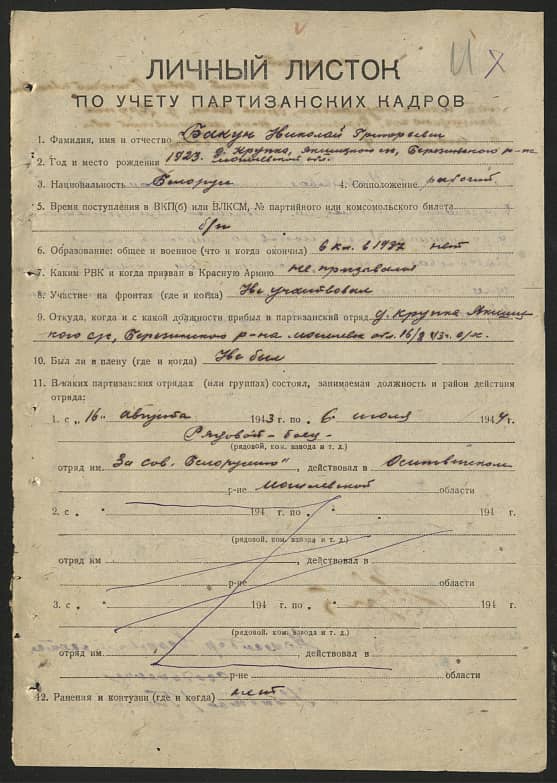 ЛИЧНЫЙ ЛИСТОК
ПО УЧЕТУ ПАРТИЗАНСКИХ КАДРОВ
1. Фамилия, имя и отчество Бакун Николай Григорьевич
2. Год и место рождения 1923. д. Крупка, Якшицкого с/с, Березинского р-на
Могилевской обл.
3. Национальность Белорус 4. Соцположение рабочий
5. Время поступления в ВКП(б) или ВЛКСМ, № партийного или комсомольского билета
б/п
6. Образование: общее и военное (что и когда окончил) 6 кл. в 1937 нет
7. Каким РВК и когда призван в Красную Армию не призывался
8. Участие на фронтах (где и когда) Не участвовал
9. Откуда, когда и с какой должности прибыл в партизанский отряд д. Крупка Якшиц-
кого с/с, Березинского р-на могилевск обл. 16/8 43г.
10. Был ли в плену (где и когда) Не был
11. В каких партизанских отрядах (или группах) состоял, занимаемая должность и район действия
отряда:
1. с „ 16 " августа 1943 г. по „ 6 " июля 1944 г.
Рядовой - боец
(рядовой, ком. взвода и т. д.)
отряд им. За сов. Белоруссию", действовал в Осиповичском
р-не Могилевской области
2. с „ " 194 г. по „ " 194 г.
(рядовой, ком. взвода и т. д.)
отряд им. , действовал в
р-не области
3. с „ " 194 г. по „ " 194 г.
(рядовой, ком. взвода и т. д.)
отряд им. , действовал в
р-не области
12. Ранения и контузии (где и когда) нет